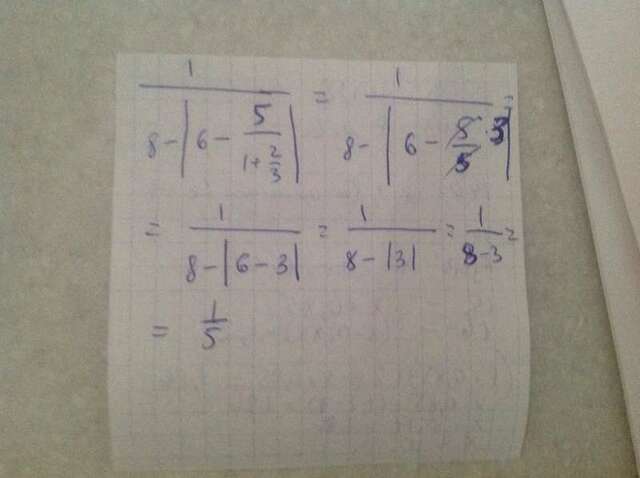 1/(8-|6-5/(1+2/3)|) = 1/(8-|6-5/5·3|) =
= 1/(8-|6-3|) = 1/(8-|3|) = 1/(8-3) =
= 1/5